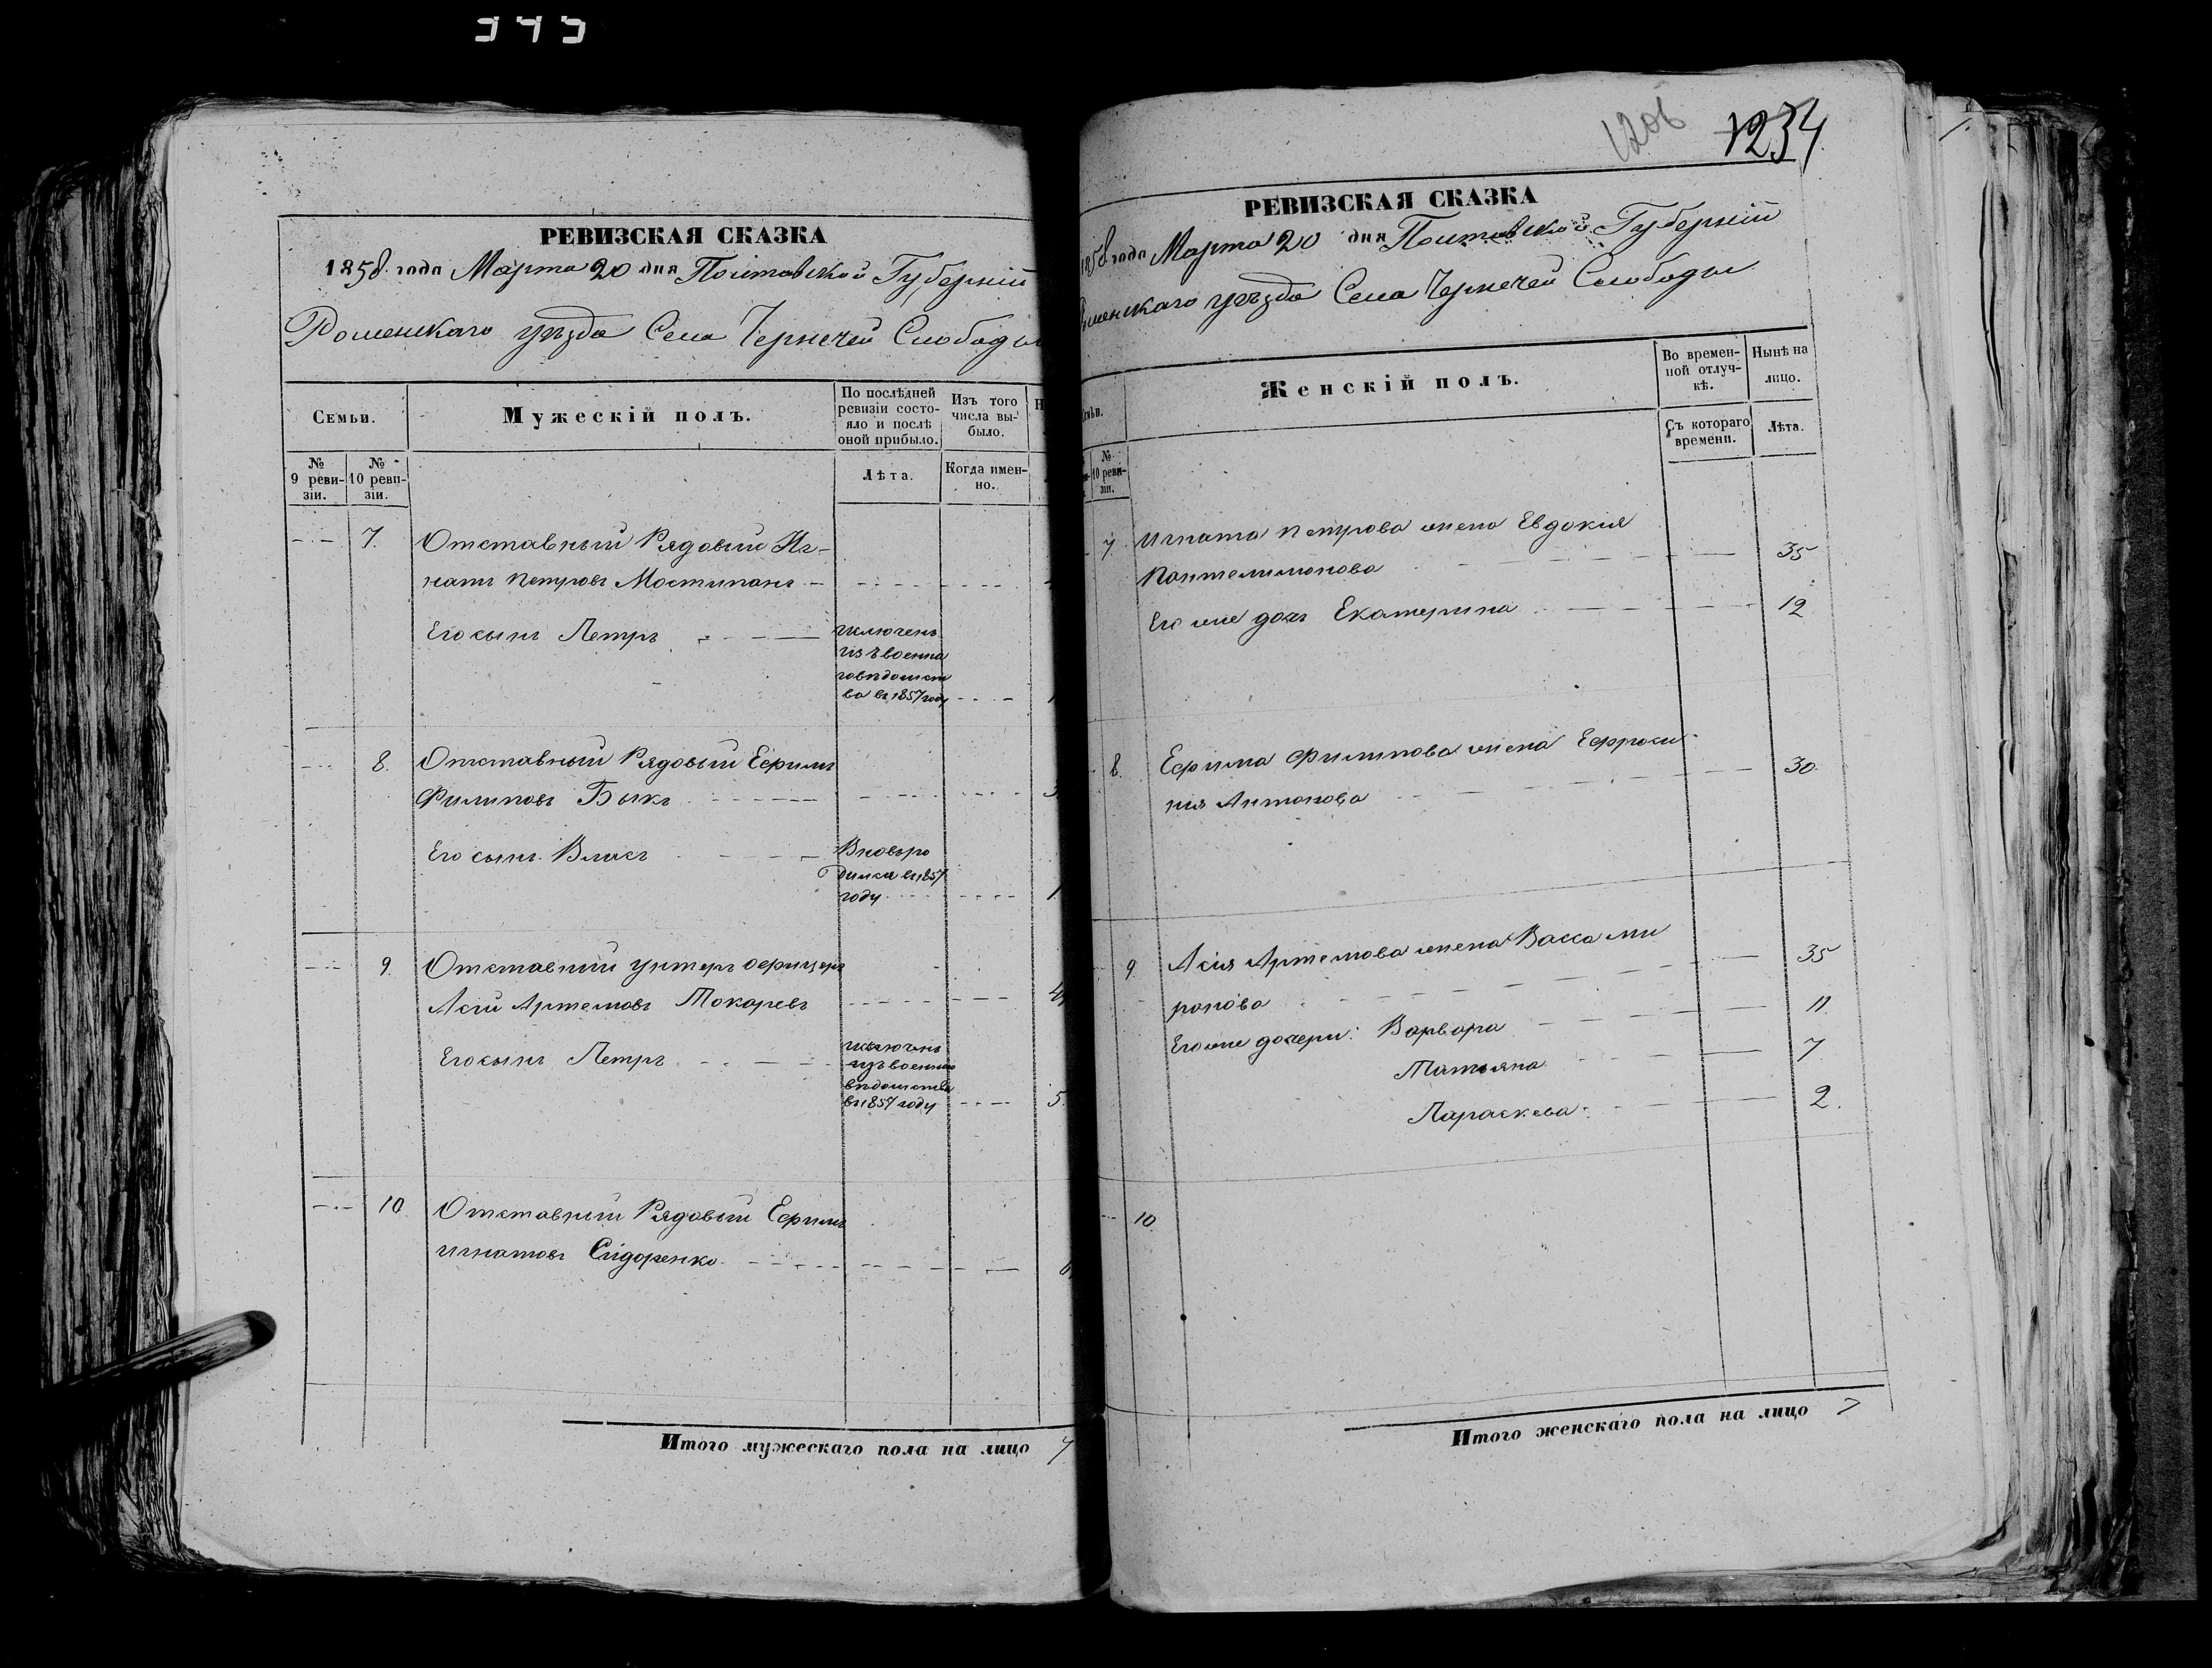 345
РЕВИЗСКАЯ СКАЗКА
1858 года Марта 20 дня Полтавской Губерніи
Роменскаго уѣзда Села Чернечей Слободы
Семьи.
Мужескій полъ.
По послѣдней ревизіи состояло и послѣ оной прибыло.
Изъ того числа выбыло.
№ 9 ревизіи.
№ 10 ревизіи.
Лѣта.
Когда именно.
7. Отставный Рядовый Иг-
натъ Петровъ Мостипанъ
Его сынъ Петръ
изключенъ
изъ военна
говѣдомст
ва въ 1857 году
8. Отставный Рядовый Ефимъ
Филиповъ Быкъ
Его сынъ Власъ
Вновьро
дился въ 1857
году
1
9. Отставный унтеръ офицеръ
Асій Артемовъ Токаревъ
4
Его сынъ Петръ
изключенъ
изъ военнаго
вѣдомства
въ 1857 году
5.
10. Отставный Рядовый Ефимъ
Игнатовъ Сидоренко
Итого мужескаго пола на лицо 7
1206
1234
РЕВИЗСКАЯ СКАЗКА
1858 года Марта 20 дня Полтавской Губерніи
Роменскаго уѣзда Села Чернечей Слободы
Женскій полъ.
Во временной отлучкѣ.
Нынѣ на лицо.
Съ котораго времени.
Лѣта.
№ 10 ревизіи.
7. Игната Петрова жена Евдокія
Пантелимонова 35
Его же дочь Екатерина 12
8. Ефима Филипова жена Ефроси-
нія Антонова 30
9. Асія Артемова жена Васса ми
ронова 35
Его же дочери: Варвара 11.
Татьяна 7
Параскева 2.
10.
Итого женскаго пола на лицо 7